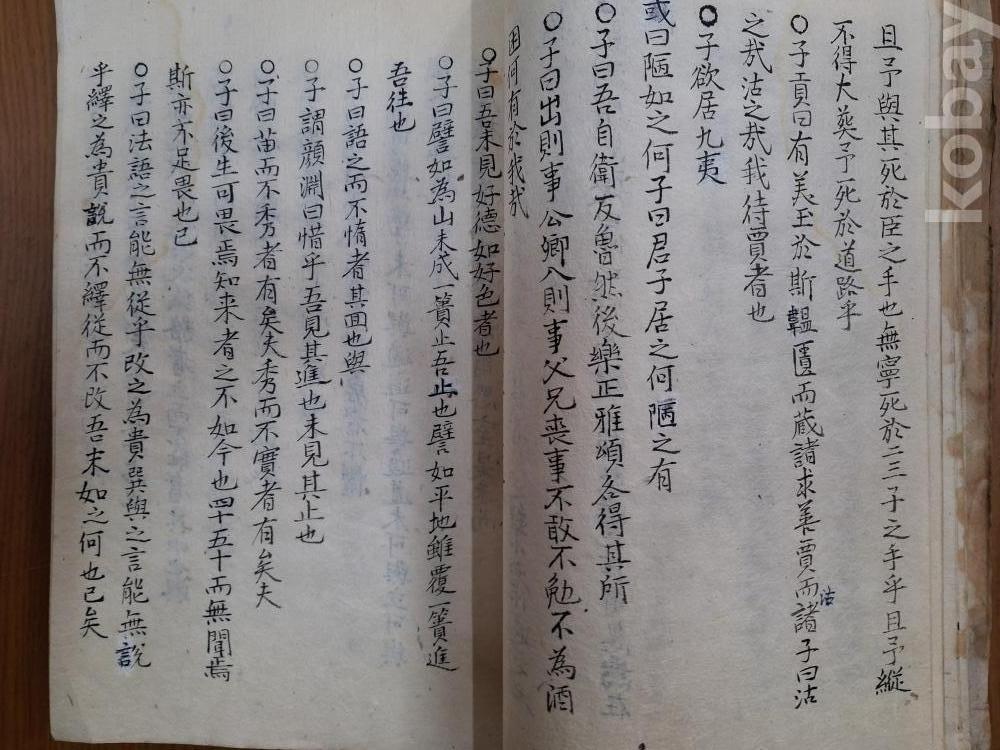 且予與其死於臣之手也無寧死於二三子之手乎且予縱
不得大葬予死於道路乎
○子貢曰有美玉於斯韞匵而蔵諸求善賈而諸子曰沽
沽
之㢤沽之㢤我待賈者也
○子欲居九夷
或曰陋如之何子曰君子居之何陋之有
○子曰吾自衛反魯然後樂正雅頌各得其所
○子曰出則事公卿入則事父兄喪事不敢不勉不為酒
困何有於我㢤
○子曰吾未見好德如好色者也
○子曰譬如為山未成一簣止吾止也譬如平地雖覆一簣進
吾往也
○子曰語之而不惰者其回也與
○子謂顔淵曰惜乎吾見其進也未見其止也
○子曰苗而不秀者有矣夫秀而不實者有矣夫
○子曰後生可畏焉知来者之不如今也四十五十而無聞焉
斯亦不足畏也已
○子曰法語之言能無從乎改之為貴巽與之言能無說
乎繹之為貴說而不繹從而不改吾末如之何也已矣
kobay